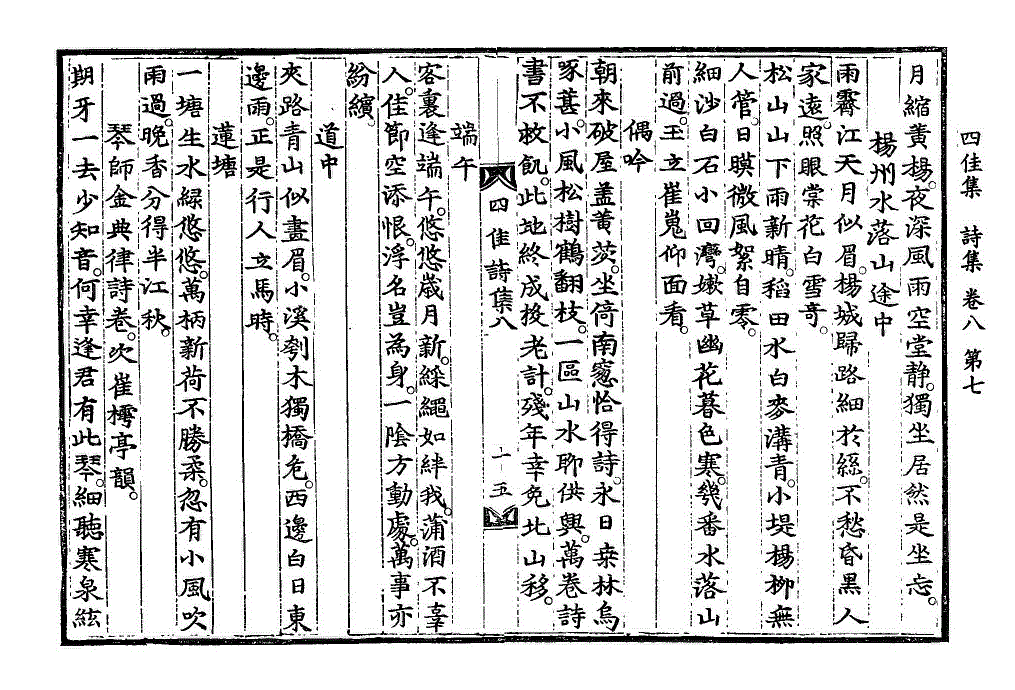 四佳集　詩集　卷八　第七
月縮黃楊。夜深風雨空堂靜。獨坐居然是坐忘。
楊州水落山途中
雨霽江天月似眉。楊城歸路細於絲。不愁昏黑人
家遠。照眼棠花白雪奇。
松山山下雨新晴。稻田水白麥溝靑。小堤楊柳無
人管。日暝微風絮自零。
細沙白石小回灣。嫩草幽花暮色寒。幾番水落山
前過。玉立崔嵬仰面看。
偶吟
朝來破屋蓋黃茨。坐倚南窓恰得詩。永日桑林烏
啄葚。小風松樹鶴翻枝。一區山水聊供興。萬卷詩
書不救飢。此地終成投老計。殘年幸免北山移。
四佳詩集八
十五
端午
客裏逢端午。悠悠歲月新。綵繩如絆我。蒲酒不辜
人。佳節空添恨。浮名豈為身。一陰方動處。萬事亦
紛繽。
道中
夾路靑山似畫眉。小溪刳木獨橋危。西邊白日東
邊雨。正是行人立馬時。
蓮塘
一塘生水綠悠悠。萬柄新荷不勝柔。忽有小風吹
雨過。晩香分得半江秋。
琴師金典律詩卷。次崔樗亭韻。
期牙一去少知音。何幸逢君有此琴。細聽寒泉絃